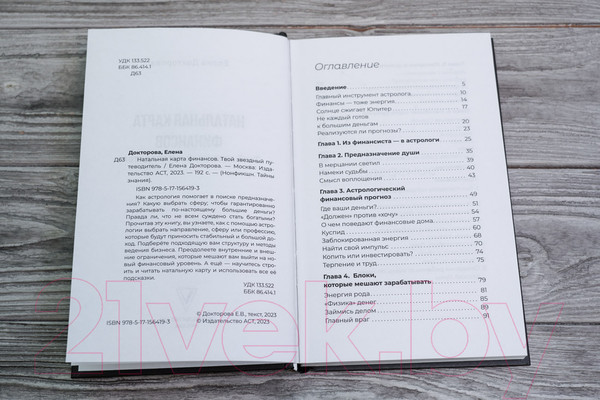 УДК 133.522
ББК 86.414.1
Д63
Докторова, Елена
Д63 Натальная карта финансов. Твой звездный пу-
теводитель / Елена Докторова. — Москва: Изда-
тельство АСТ, 2023. — 192 с. — (Нонфикшн. Тайны
знания).
ISBN 978-5-17-156419-3
Как астрология помогает в поиске предназна-
чения? Какую выбрать сферу, чтобы гарантированно
зарабатывать по-настоящему большие деньги?
Правда ли, что не всем суждено стать богатыми?
Прочитав эту книгу, вы узнаете, как с помощью астро-
логии выбрать направления, сферу или профессию,
которые будут приносить стабильный и большой до-
ход. Подберёте подходящую вам структуру и методы
ведения бизнеса. Преодолеете внутренние и внеш-
ние ограничения, которые мешают вам выйти на но-
вый финансовый уровень. А ещё — научитесь стро-
ить и читать натальную карту и использовать все её
подсказки.
УДК 133.522
ББК 86.414.1
© Докторова Е.В., текст, 2023
ISBN 978-5-17-156419-3 © Издательство АСТ, 2023
Оглавление
Введение 5
Главный инструмент астролога 10
Финансы — тоже энергия 14
Солнце сжигает Юпитер 17
Не каждый готов
к большим деньгам 20
Реализуются ли прогнозы? 23
Глава 1. Из финансиста — в астрологи 25
Глава 2. Предназначение души
В мерцании светил
Намеки судьбы 40
Смысл воплощения 43
Глава 3. Астрологический
финансовый прогноз 49
Где ваши деньги? 51
«Должен» против «хочу» 54
О чем поведают финансовые дома 57
Куспид 60
Заблокированная энергия 68
Найти свой импульс 70
Копить или инвестировать? 74
Терпение и труд 75
Глава 4. Блоки,
которые мешают зарабатывать 79
Энергия рода 81
«Физика» денег 85
Займись делом 89
Главный враг 91
21vek.by